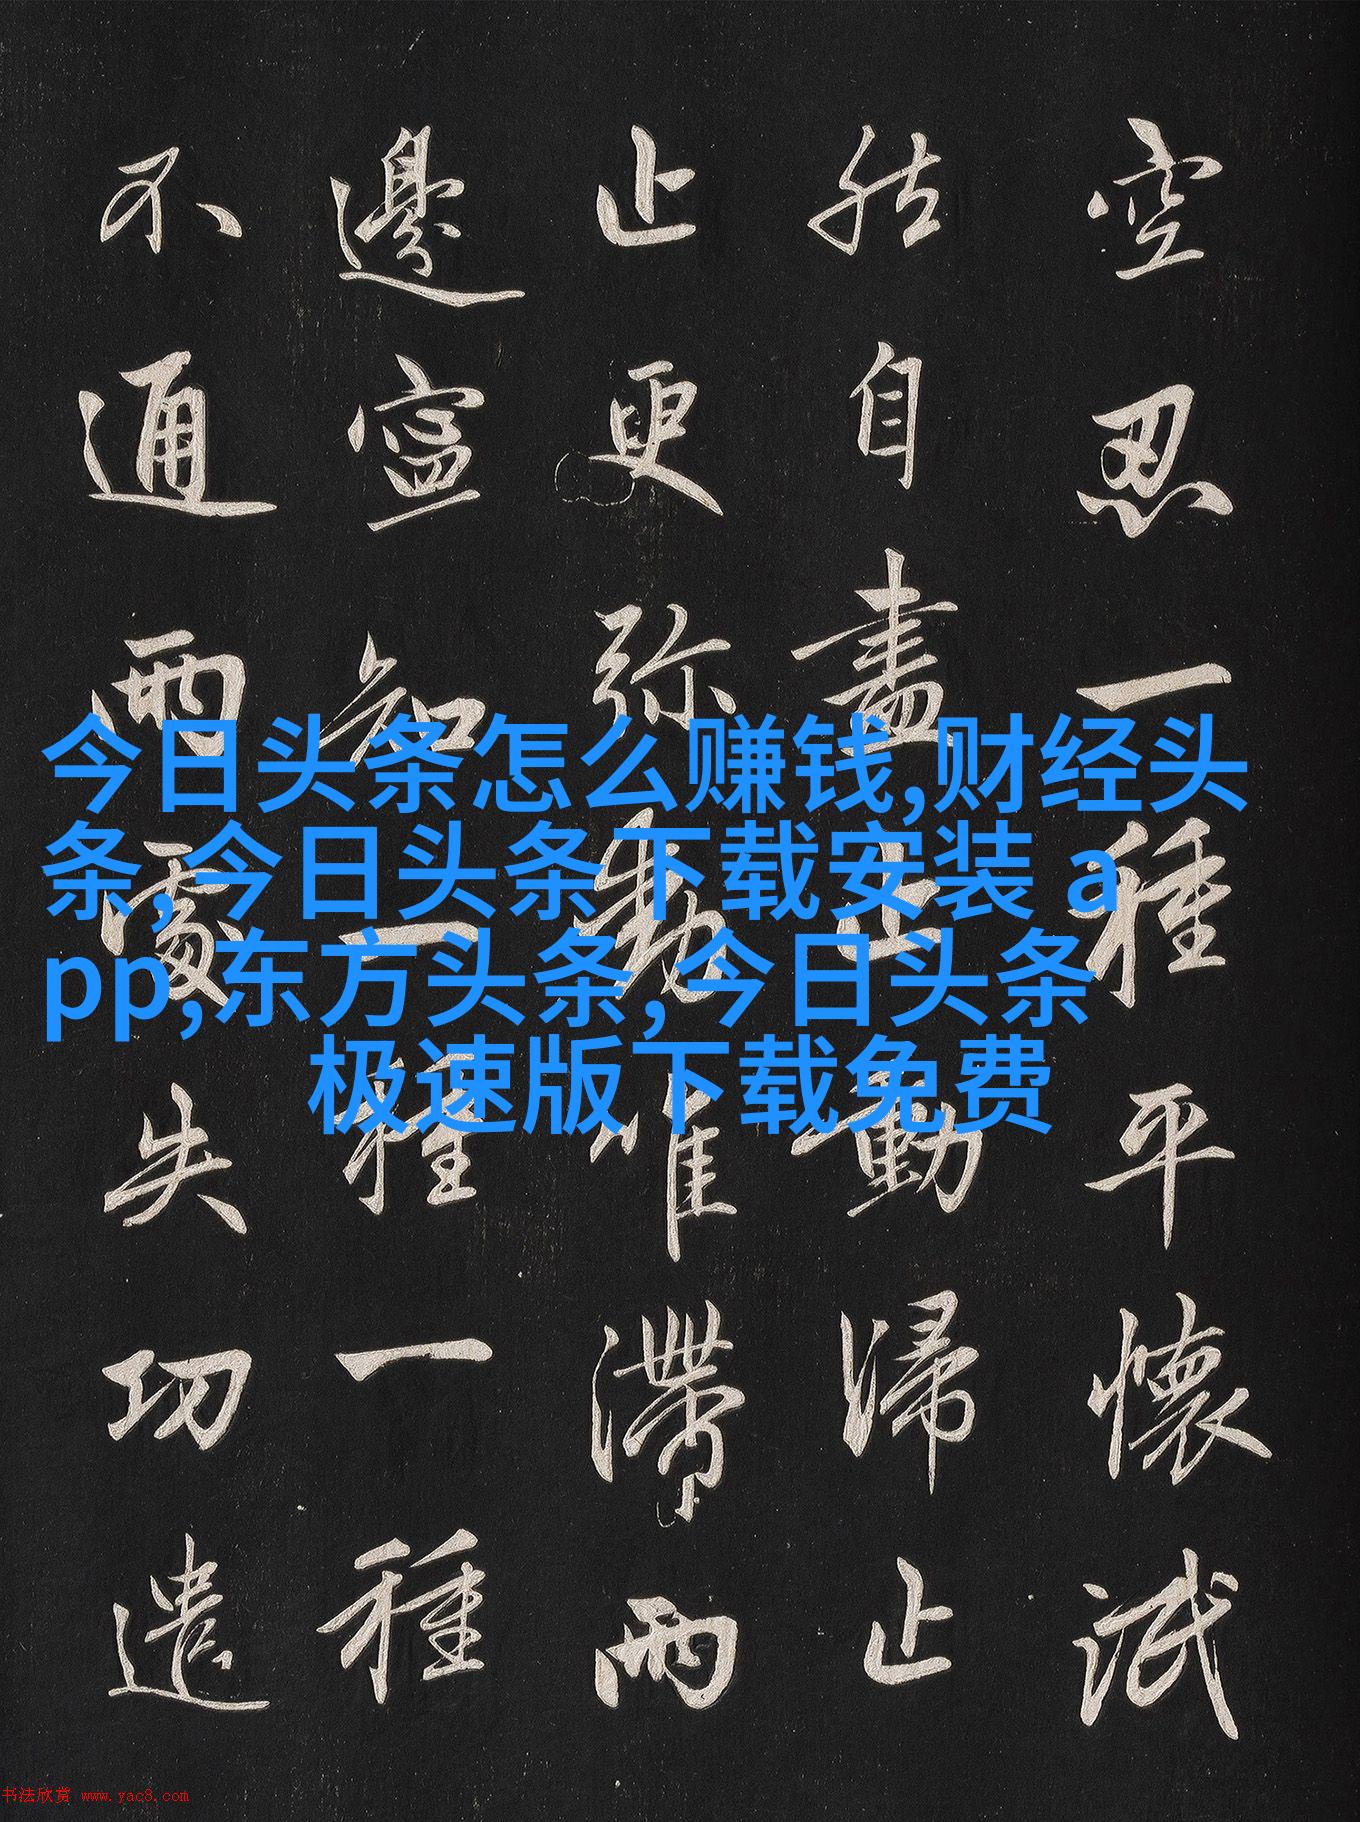 空忍一種平懷泯
然自盡止動歸止
止更弥動唯滯兩
邊寧知一種一種
不通兩處失功遣
今日头条怎么赚钱,财经头
条,今日头条下载安装 a
pp,东方头条,今日头条
极速版下载免费
书法欣赏 www.yac8.com